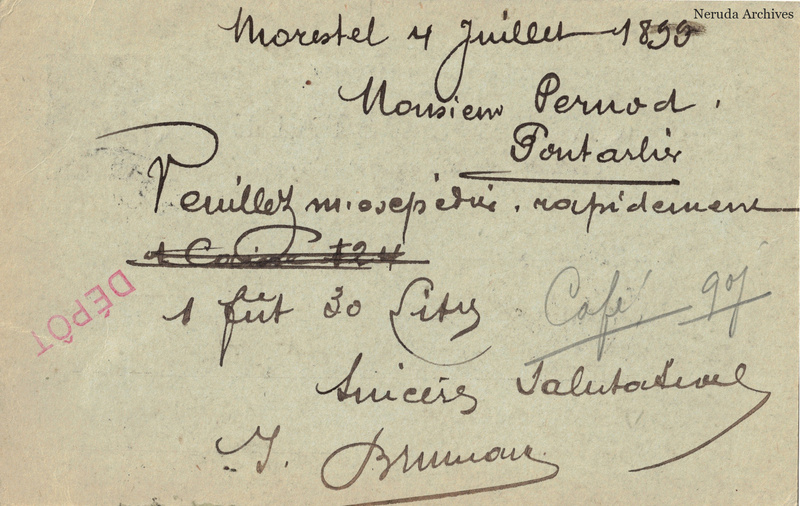 Neruda Archives
Morestel 4 Juillet 1899
Monsieur Pernod.
Pontarlier
Veuillez m'expédier. rapidement
1 fût 30 Litres
Café
Sincères Salutations
J.
DÉPÔT